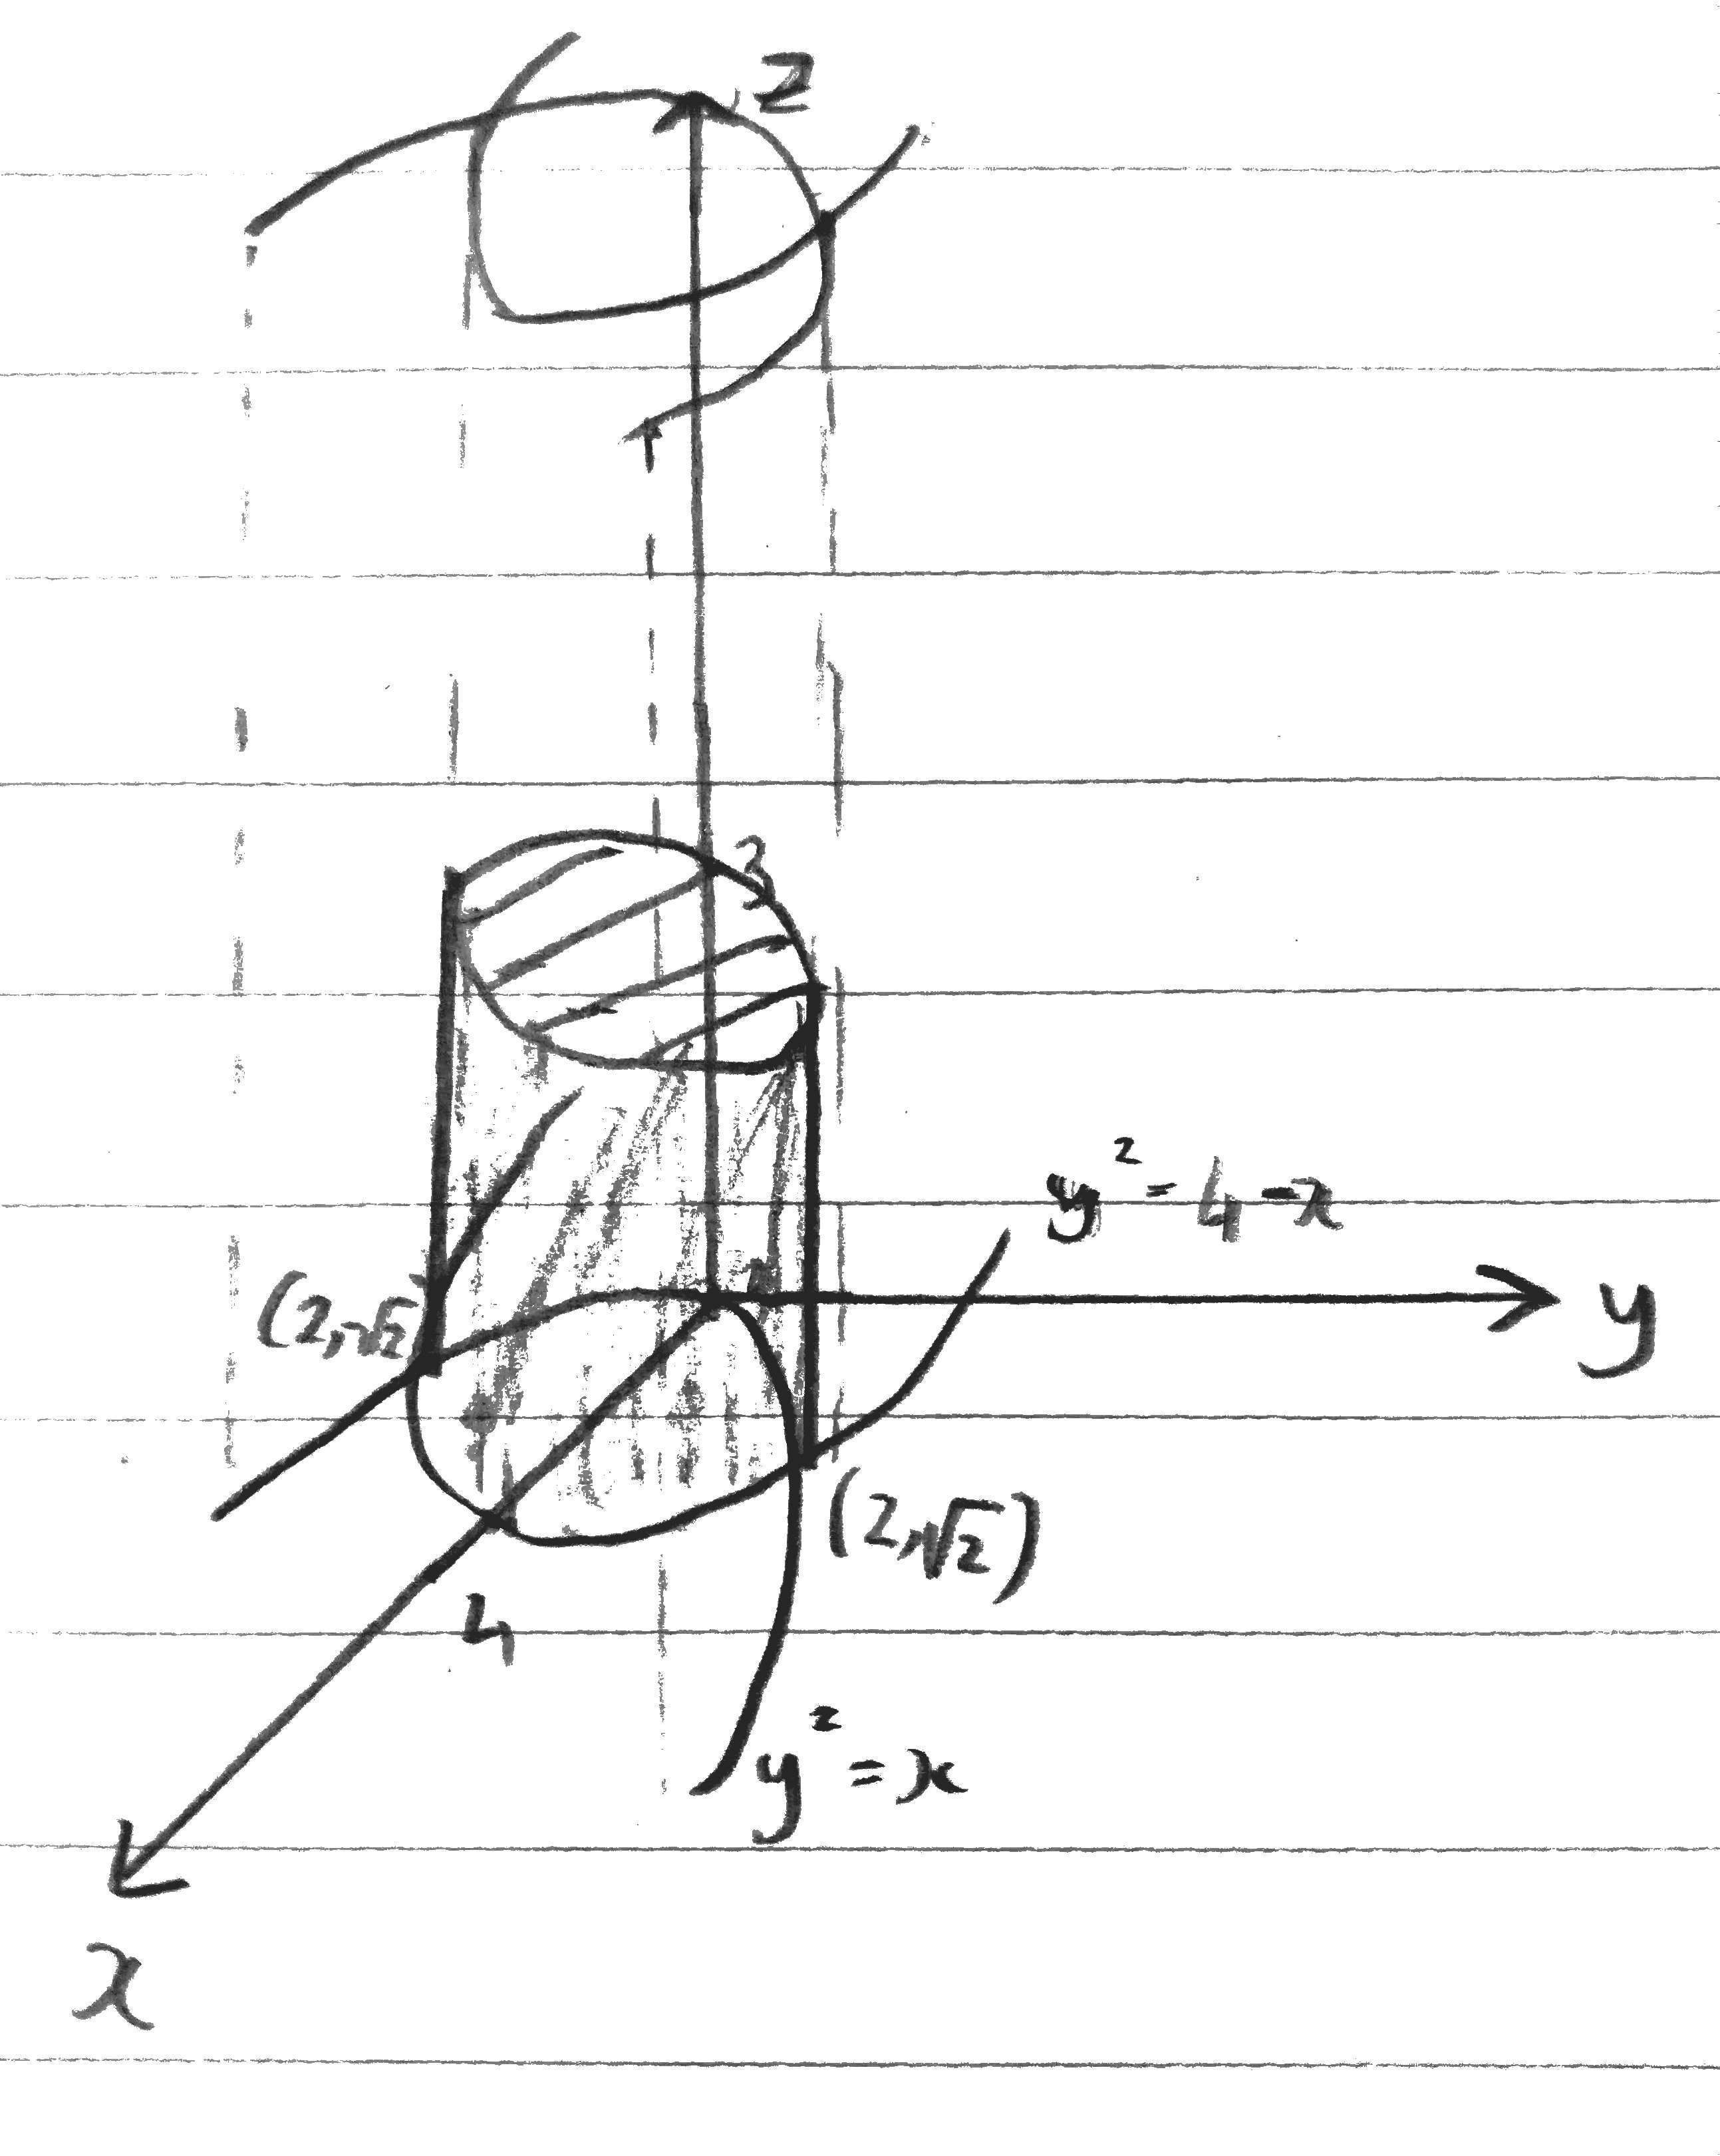 z
3
y² = 4 - x
(2, -√2)
y
(2, √2)
4
y² = x
x